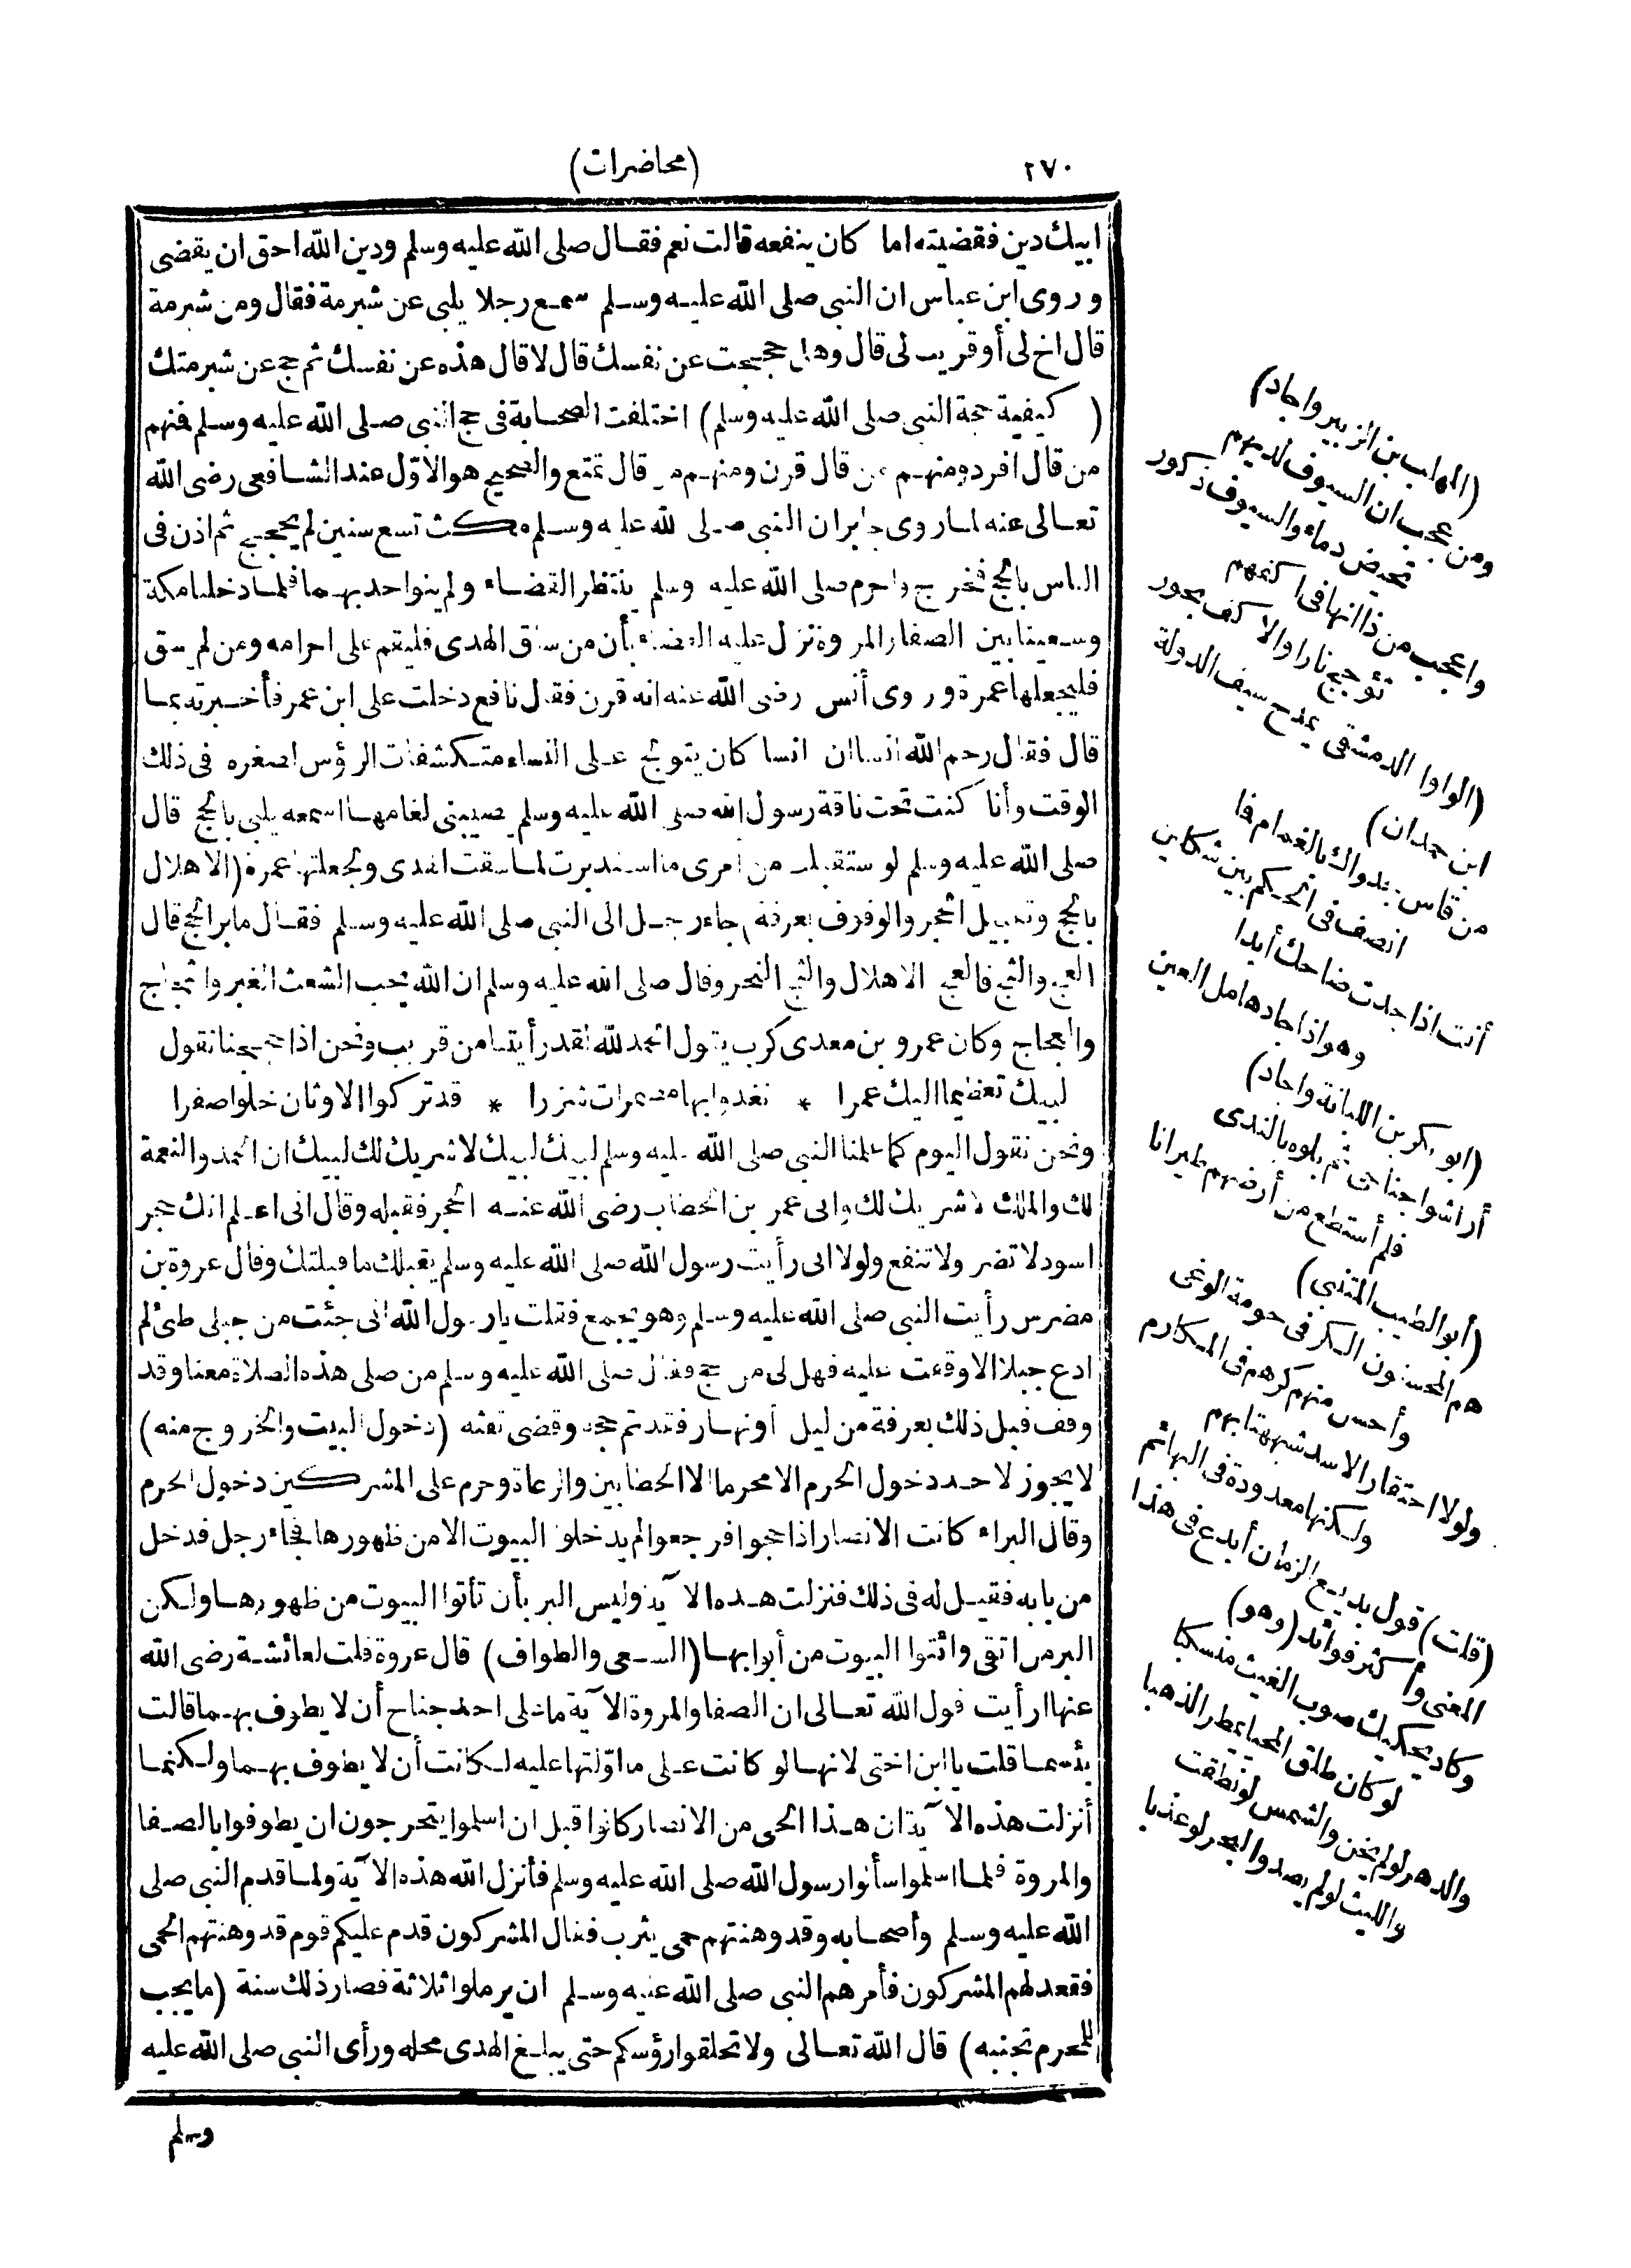 ٢٧٠
(محاضرات)
ابيك دين فقضيته اما كان ينفعه قالت نعم فقال صلى الله عليه وسلم ودين الله احق ان يقضى
وروى ابن عباس ان النبي صلى الله عليه وسلم سمع رجلا يلبى عن شبرمة فقال ومن شبرمة
قال اخ لى أوقريب لى قال وهل حججت عن نفسك قال لا قال هذه عن نفسك ثم حج عن شبرمتك
(كيفية حجة النبي صلى الله عليه وسلم) اختلفت الصحابة فى حج النبي صلى الله عليه وسلم فمنهم
من قال افرد ومنهم من قال قرن ومنهم من قال تمتع والصحيح هو الاوّل عند الشافعى رضى الله
تعالى عنه لما روى جابر ان النبي صلى الله عليه وسلم مكث تسع سنين لم يحجج ثم اذن فى
الناس بالحج فخرج واحرم صلى الله عليه وسلم ينتظر القضاء ولم ينو احد بهما فلما دخلنا مكة
وسعينا بين الصفا والمروة نزل عليه القضاء بأن من ساق الهدى فليقم على احرامه ومن لم يسق
فليجعلها عمرة وروى أنس رضى الله عنه انه قرن فقال نافع دخلت على ابن عمر فأخبرته بما
قال فقال رحم الله انسا ان انسا كان يتولج على النساء متكشفات الرؤس لصغره فى ذلك
الوقت وأنا كنت تحت ناقة رسول الله صلى الله عليه وسلم يصيبنى لغامها اسمعه يلبى بالحج قال
صلى الله عليه وسلم لو استقبلت من أمرى ما استدبرت لما سقت الهدى ولجعلتها عمرة (الاهلال
بالحج وتقبيل الحجر والوقوف بعرفة) جاء رجل الى النبي صلى الله عليه وسلم فقال ما بر الحج قال
العج والثج فالعج الاهلال والثج النحر وقال صلى الله عليه وسلم ان الله يحب الشعث الغبر والثجاج
والعجاج وكان عمرو بن معدى كرب يقول الحمد لله لقد رأيتنا من قريب ونحن اذا حججنا نقول
لبيك تعظيما اليك عمرا * نغدو ابها مضمرات شزرا * قد تركوا الاوثان خلوا صفرا
ونحن نقول اليوم كما علمنا النبي صلى الله عليه وسلم لبيك لبيك لا شريك لك لبيك ان الحمد والنعمة
لك والملك لا شريك لك وأتى عمر بن الخطاب رضى الله عنه الحجر فقبله وقال انى اعلم انك حجر
اسود لا تضر ولا تنفع ولولا انى رأيت رسول الله صلى الله عليه وسلم يقبلك ما قبلتك وقال عروة بن
مضرس رأيت النبي صلى الله عليه وسلم وهو بجمع فقلت يا رسول الله انى جئت من جبلى طئ لم
ادع جبلا الا وقفت عليه فهل لى من حج فقال صلى الله عليه وسلم من صلى هذه الصلاة معنا وقد
وقف قبل ذلك بعرفة من ليل أونهار فقد تم حجه وقضى تفثه (دخول البيت والخروج منه)
لا يجوز لاحد دخول الحرم الا محرما الا الحطابين والرعاة وحرم على المشركين دخول الحرم
وقال البراء كانت الانصار اذا حجوا فرجعوا لم يدخلوا البيوت الا من ظهورها فجاء رجل فدخل
من بابه فقيل له فى ذلك فنزلت هذه الآية وليس البر بأن تأتوا البيوت من ظهورها ولكن
البر من اتقى وائتوا البيوت من أبوابها (السعى والطواف) قال عروة قلت لعائشة رضى الله
عنها ارأيت قول الله تعالى ان الصفا والمروة الآية ما على احد جناح أن لا يطوف بهما قالت
بئسما قلت يا ابن اختى لانها لو كانت على ما اوّلتها عليه لكانت أن لا يطوف بهما ولكنما
أنزلت هذه الآية ان هذا الحى من الانصار كانوا قبل ان اسلموا يتحرجون ان يطوفوا بالصفا
والمروة فلما اسلموا سألوا رسول الله صلى الله عليه وسلم فأنزل الله هذه الآية ولما قدم النبي صلى
الله عليه وسلم وأصحابه وقد وهنتهم حمى يثرب فقال المشركون قدم عليكم قوم قد وهنتهم الحمى
فقعد لهم المشركون فأمرهم النبي صلى الله عليه وسلم ان يرملوا ثلاثة فصار ذلك سنة (ما يجب
للمحرم تجنبه) قال الله تعالى ولا تحلقوا رؤسكم حتى يبلغ الهدى محله ورأى النبي صلى الله عليه
وسلم
(المهلب بن الزبير واجاد)
ومن عجب ان السيوف لديهم
تحيض دماء والسيوف ذكور
واعجب من ذا انها فى اكفهم
تؤجج نارا والاكف بحور
(الواوا الدمشقى يمدح سيف الدولة
ابن حمدان)
من قاس جدواك بالغمام فما
انصف فى الحكم بين شكلين
أنت اذا جدت ضاحك أبدا
وهو اذا جاد هامل العين
(ابو بكر بن اللبانة واجاد)
أراشوا جناحى ثم بلوه بالندى
فلم أستطع من أرضهم طيرانا
(أبو الطيب المتنبى)
هم المحسنون الكر فى حومة الوغى
وأحسن منهم كرهم فى المكارم
ولولا احتقار الاسد شبهتها بهم
ولكنها معدودة فى البهائم
(قلت) قول بديع الزمان أبدع فى هذا
المعنى وأكثر فوائد (وهو)
وكاد يحكيك صوب الغيث منسكبا
لو كان طلق المحيا يمطر الذهبا
والدهر لو لم يخن والشمس لو نطقت
والليث لو لم يصد والبحر لو عذبا